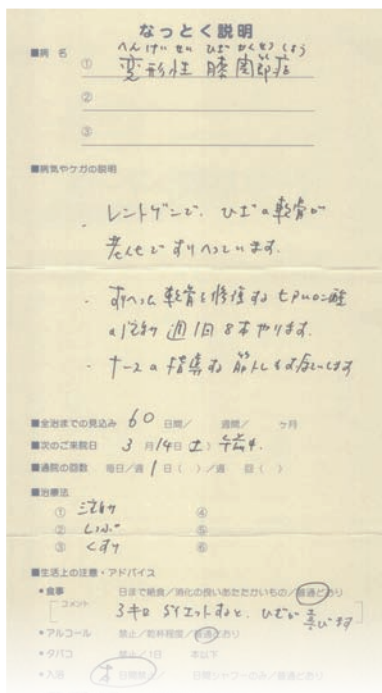 なっとく説明
■病 名
へんけいせい ひざ かんせつ しょう
① 変形性 膝関節症
②
③
■病気やケガの説明
・レントゲンで、ひざの軟骨が
老化ですりへっています。
・すりへった軟骨を修復するヒアルロン酸
の注射 週1回 8本やります。
・ナースの指導する筋トレもお願いします
■全治までの見込み 60 日間/ 週間/ ヶ月
■次のご来院日 3 月 14日 (土) 午前中.
■通院の回数 毎日/週 1 日( )/週 回( )
■治療法
① 注射 ④
② しっぷ ⑤
③ くすり ⑥
■生活上の注意・アドバイス
●食事 日まで絶食/消化の良いあたたかいもの/普通どおり
コメント 3キロ ダイエットすると、ひざが喜びます
●アルコール 禁止/乾杯程度/普通どおり
●タバコ 禁止/1日 本以下
●入浴 日間禁止/ 日間シャワーのみ/普通どおり